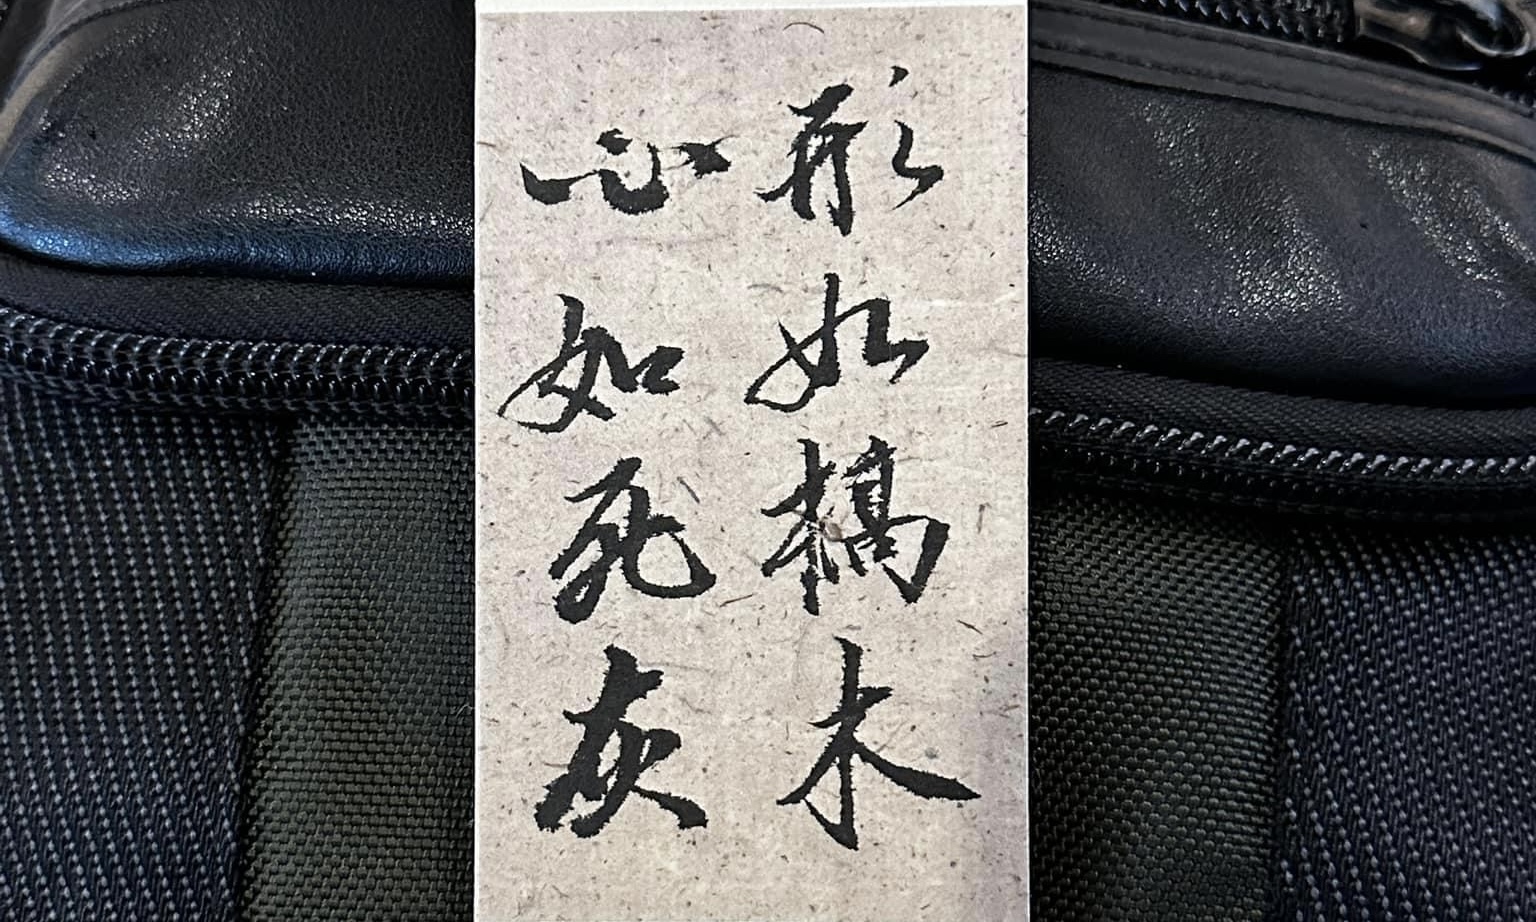 形如槁木
心如死灰